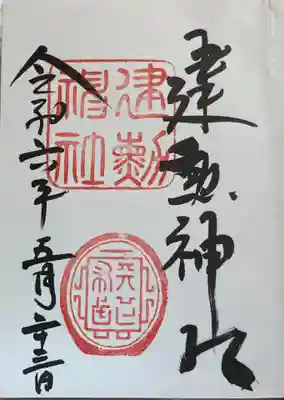 建勲神社
建勲神社
令和六年五月二十三日